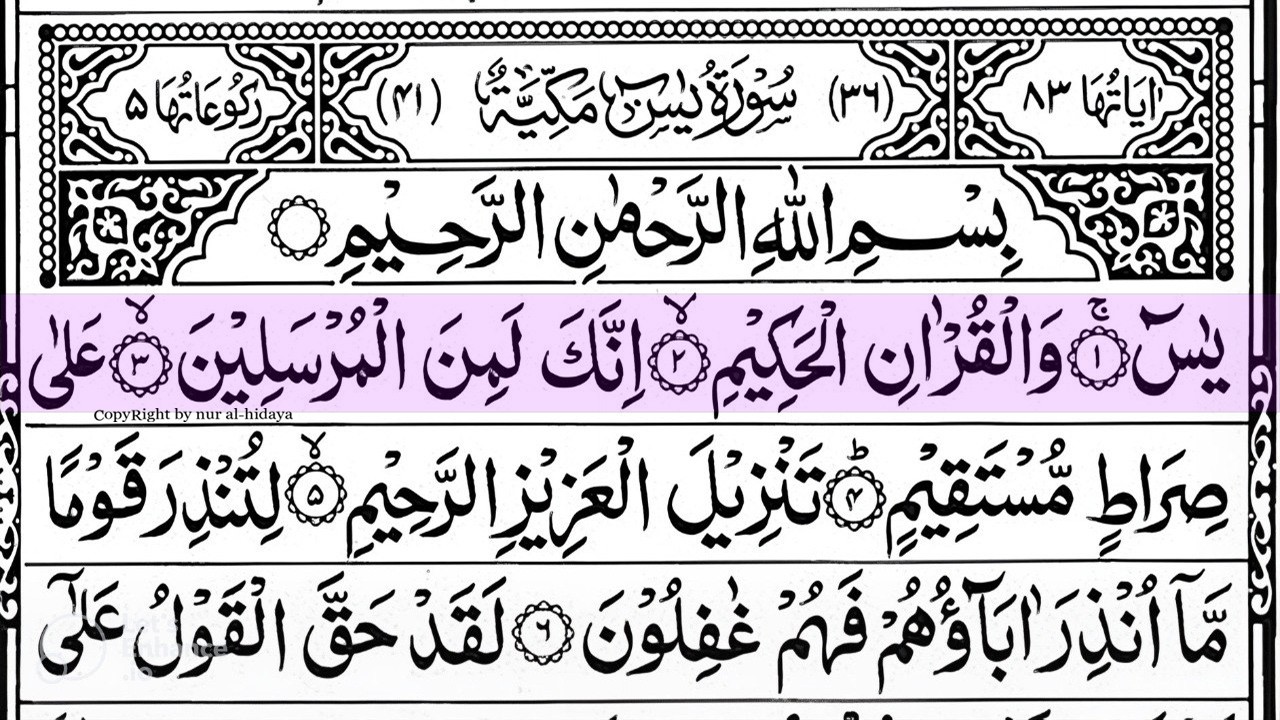 اٰيَاتُهَا ٨٣ (٣٦) سُوْرَةُ يٰسٓ مَكِّيَّةٌ (٤١) رُكُوْعَاتُهَا ۵
بِسْمِ اللّٰهِ الرَّحْمٰنِ الرَّحِيْمِ
يٰسٓ ۚ ﴿١﴾ وَالْقُرْاٰنِ الْحَكِيْمِ ۙ ﴿٢﴾ اِنَّكَ لَمِنَ الْمُرْسَلِيْنَ ۙ ﴿٣﴾ عَلٰى
CopyRight by nur al-hidaya
صِرَاطٍ مُّسْتَقِيْمٍ ؕ ﴿۴﴾ تَنْزِيْلَ الْعَزِيْزِ الرَّحِيْمِ ۙ ﴿۵﴾ لِتُنْذِرَ قَوْمًا
مَّآ اُنْذِرَ اٰبَآؤُهُمْ فَهُمْ غٰفِلُوْنَ ﴿۶﴾ لَقَدْ حَقَّ الْقَوْلُ عَلٰٓى
Let's
Enhance
.io